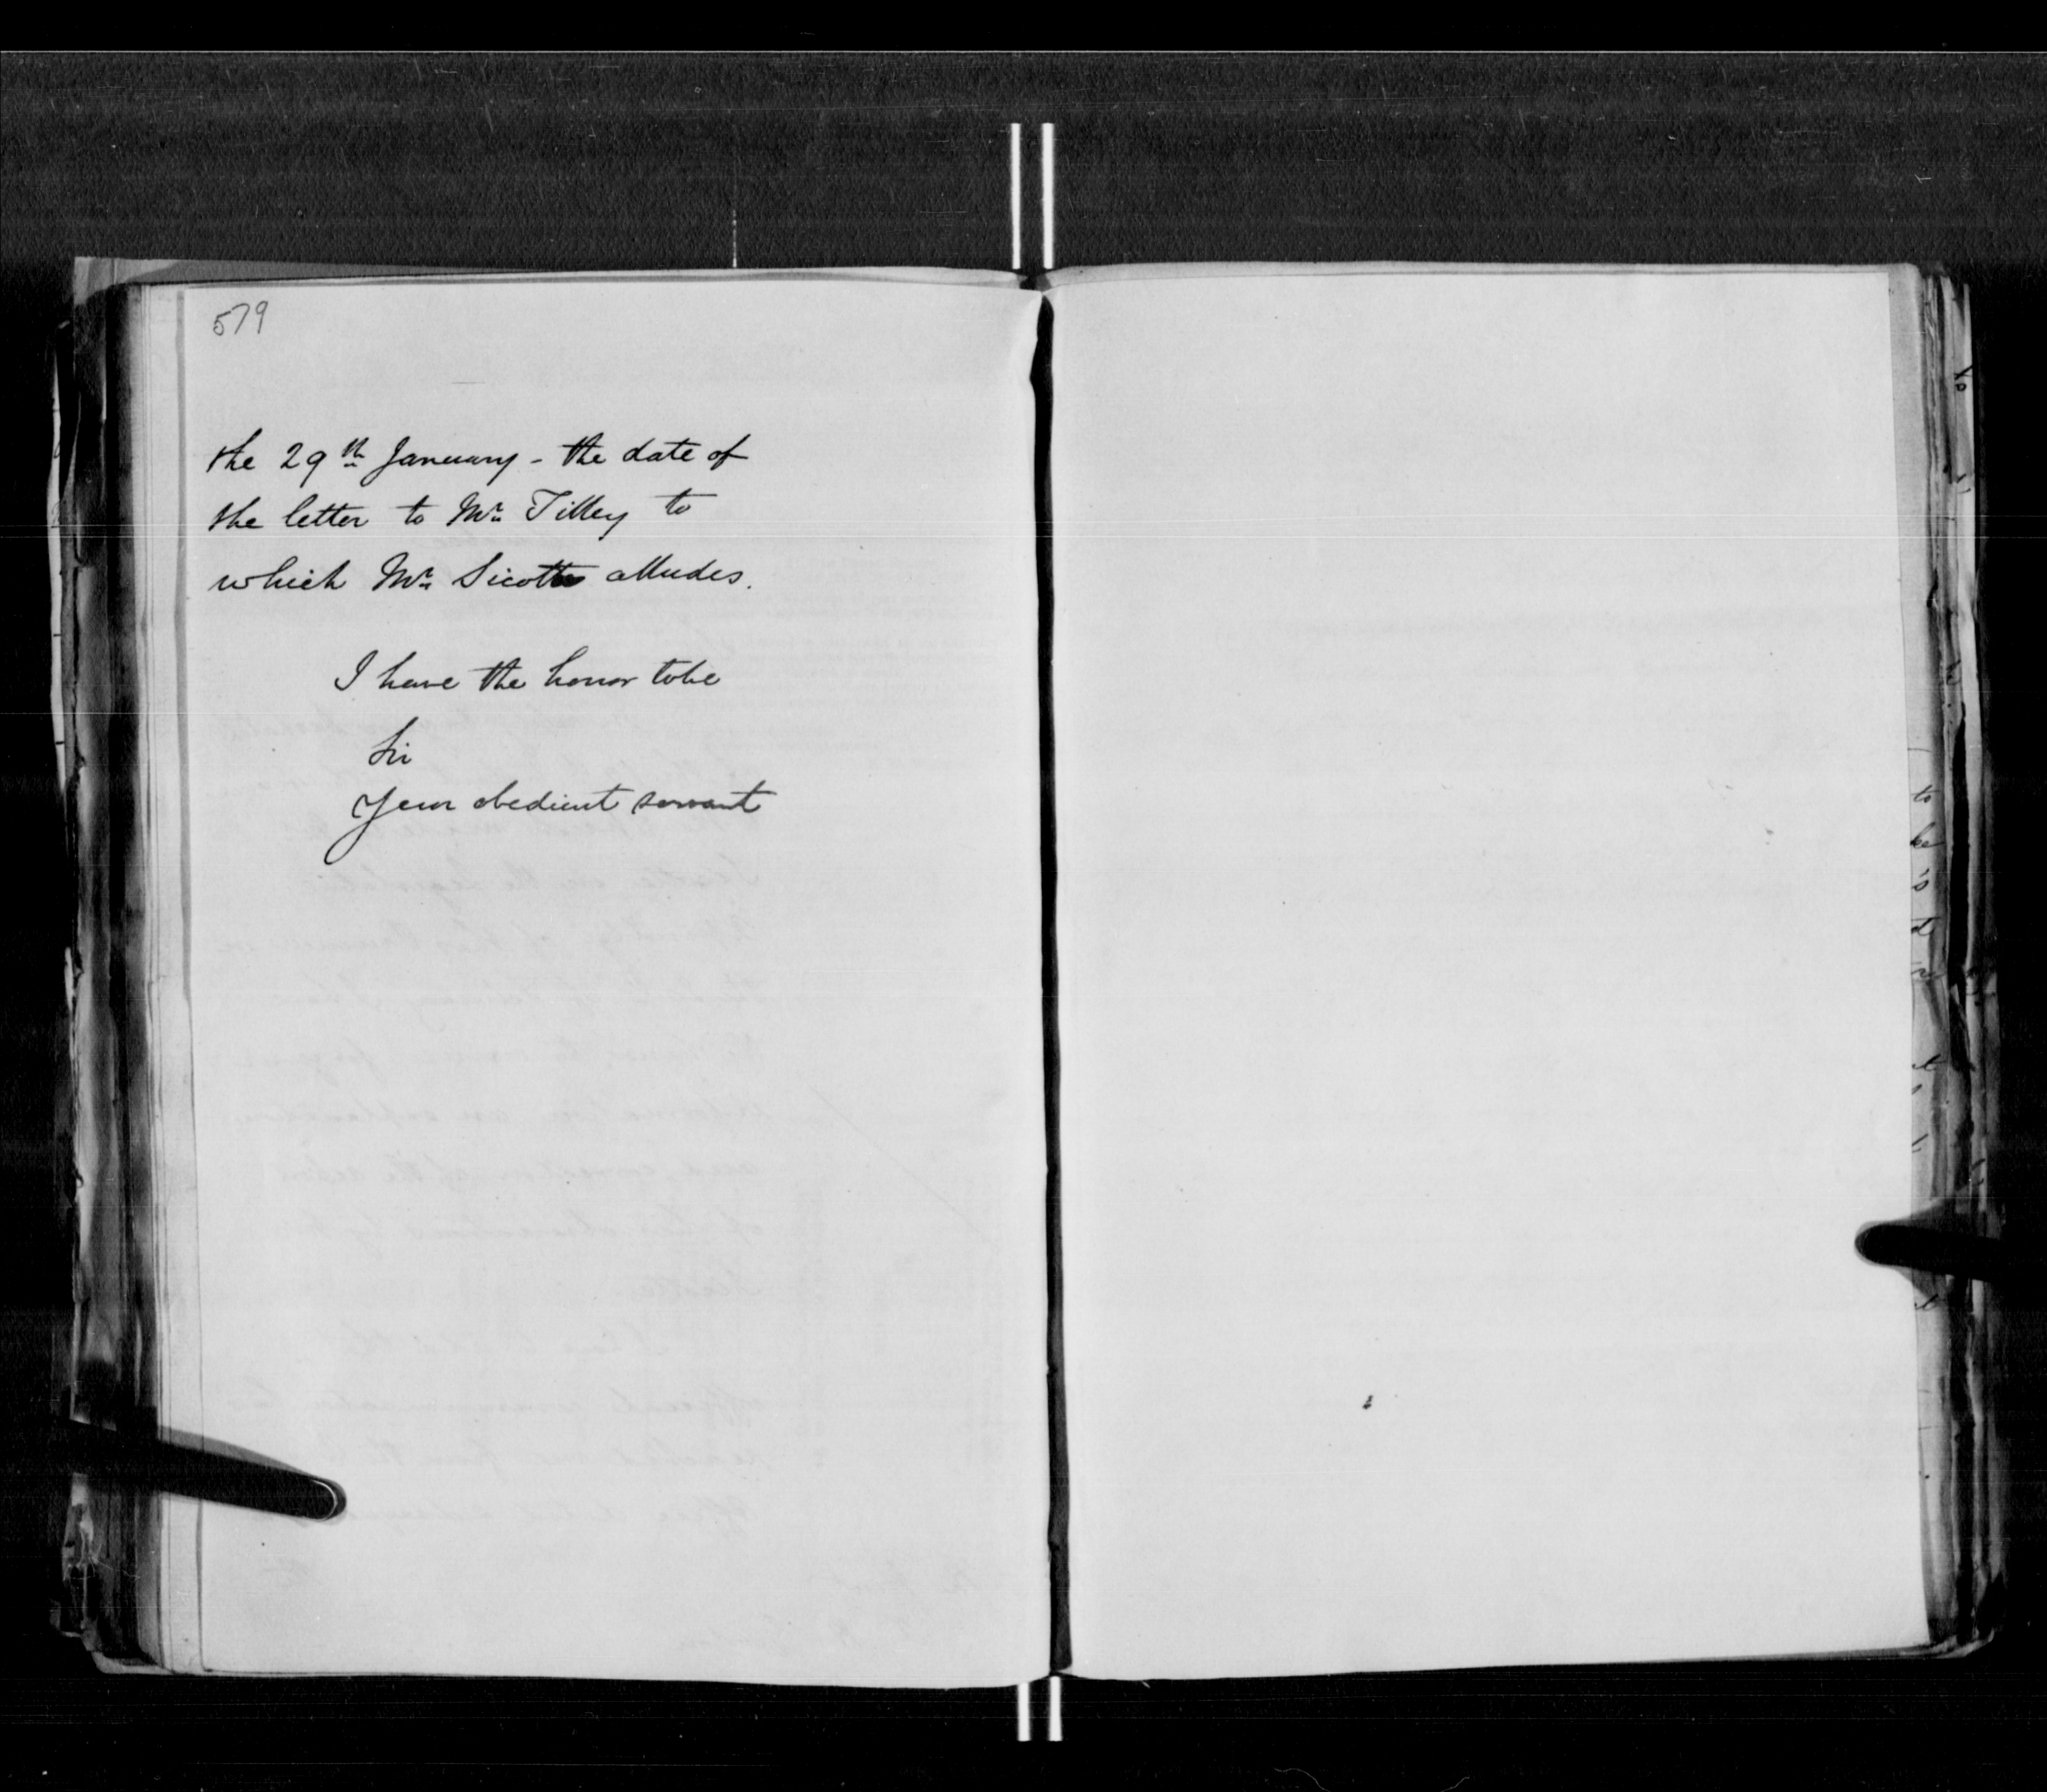 579
the 29th January - the date of
the letter to Mr. Tilley to
which Mr. Sicotte alludes.
I have the honor to be
Sir
Your obedient servant